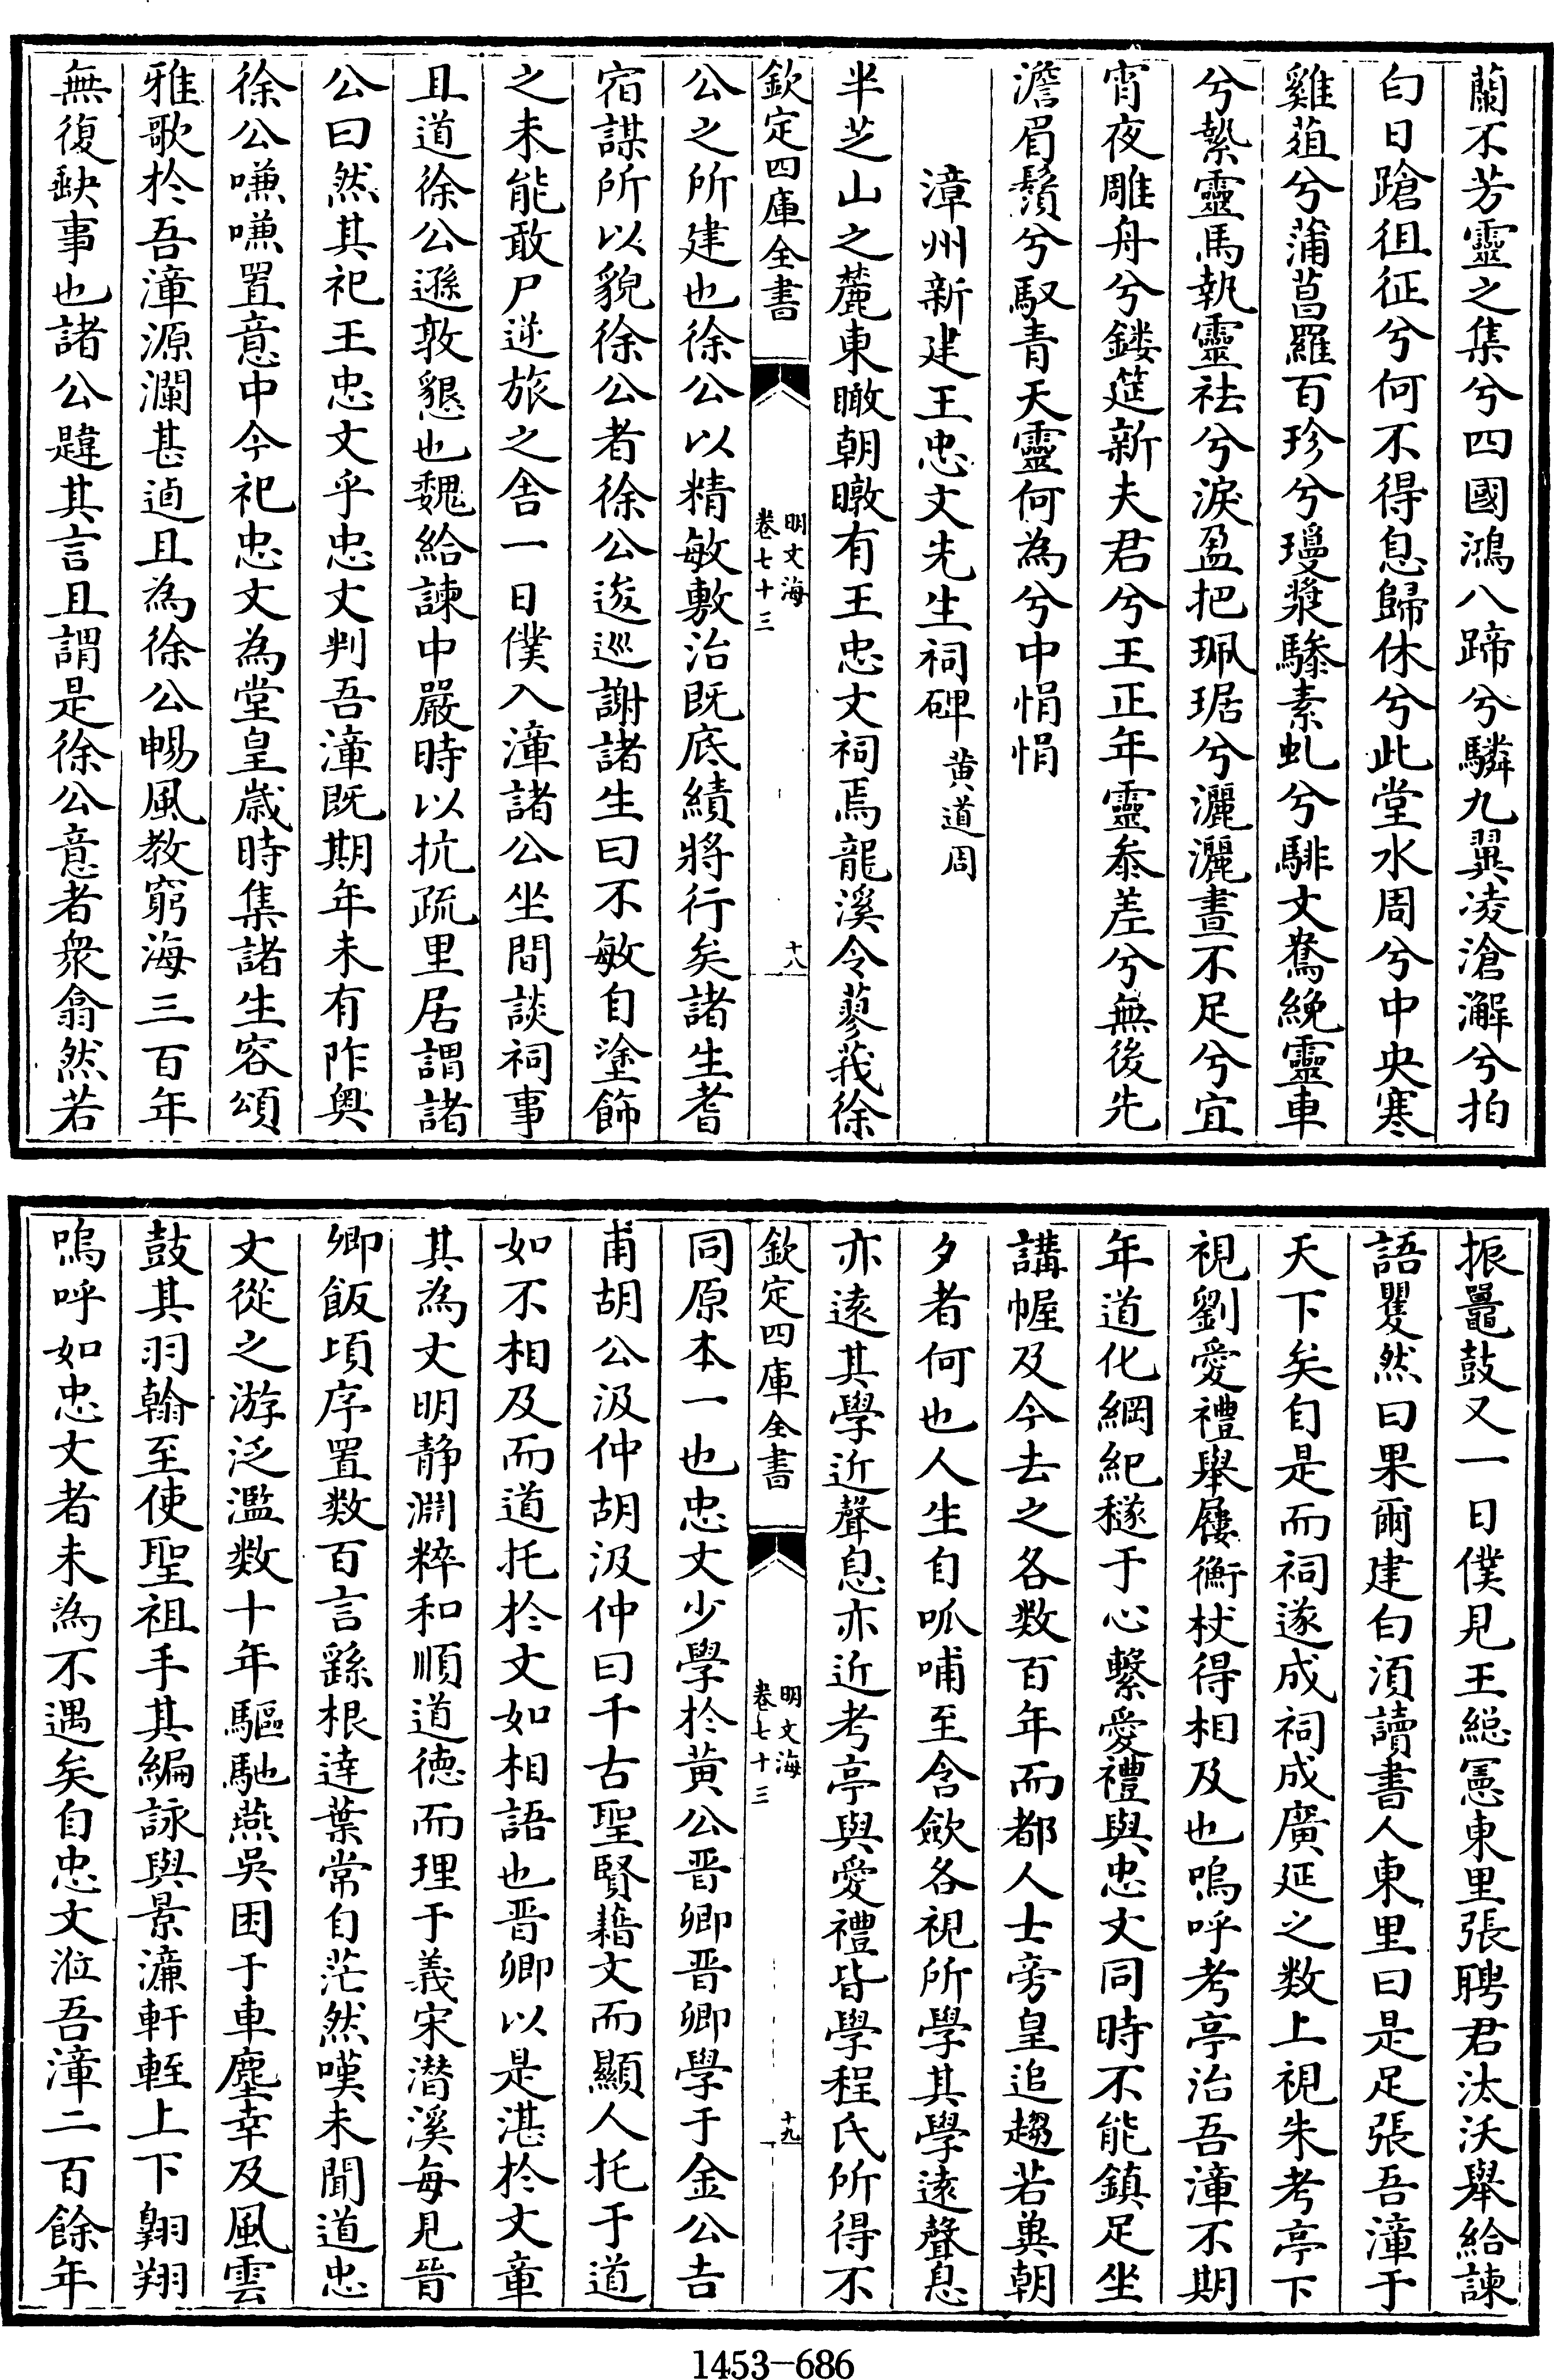 蘭不芳靈之集兮四國鴻八蹄兮驎九翼凌滄澥兮拍
白日蹌徂征兮何不得息歸休兮此堂水周兮中央寒
雞菹兮蒲菖羅百珍兮瓊漿驂素虬兮騑文鴦絻靈車
兮縶靈馬執靈祛兮淚盈把珮琚兮灑灑晝不足兮宜
宵夜雕舟兮鏤筵新夫君兮王正年靈叅差兮無後先
澹眉鬚兮馭青天靈何為兮中悁悁
漳州新建王忠文先生祠碑 黄道周
半芝山之麓東瞰朝暾有王忠文祠焉龍溪令蓼莪徐
欽定四庫全書 明文海 卷七十三 十八
公之所建也徐公以精敏敷治既底績將行矣諸生耆
宿謀所以貌徐公者徐公逡巡謝諸生曰不敏自塗飾
之未能敢尸逆旅之舍一日僕入漳諸公坐間談祠事
且道徐公遜敦懇也魏給諫中嚴時以抗疏里居謂諸
公曰然其祀王忠文乎忠文判吾漳既期年未有阼奥
徐公嗛嗛置意中今祀忠文為堂皇歳時集諸生容頌
雅歌於吾漳源瀾甚逌且為徐公暢風教窮海三百年
無復缺事也諸公韙其言且謂是徐公意者衆翕然若
振鼉鼓又一日僕見王緫憲東里張聘君汰沃舉給諫
語矍然曰果爾建白湏讀書人東里曰是足張吾漳于
天下矣自是而祠遂成祠成廣延之数上視朱考亭下
視劉愛禮舉屨衡杖得相及也嗚呼考亭治吾漳不期
年道化綱紀穟于心繫愛禮與忠文同時不能鎮足坐
講幄及今去之各数百年而都人士旁皇追趨若奠朝
夕者何也人生自呱哺至含歛各視所學其學逺聲息
亦逺其學近聲息亦近考亭與愛禮皆學程氏所得不
欽定四庫全書 明文海 卷七十三 十九
同原本一也忠文少學於黄公晋卿晋卿學于金公吉
甫胡公汲仲胡汲仲曰千古聖賢藉文而顯人托于道
如不相及而道托於文如相語也晋卿以是湛於文章
其為文明静淵粹和順道德而理于義宋潜溪每見晉
卿飯頃序置数百言繇根達葉常自茫然嘆未聞道忠
文從之游泛濫数十年驅馳燕吳困于車塵幸及風雲
鼓其羽翰至使聖祖手其編詠與景濂軒輊上下翺翔
嗚呼如忠文者未為不遇矣自忠文涖吾漳二百餘年
1453-686